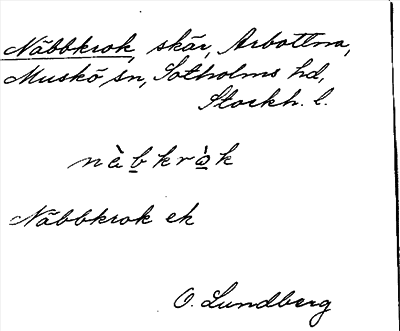 Näbbkrok, skär, Arbottna,
Muskö sn, Sotholms hd,
Stockh. l.
nàb̲krò̲k
Näbbkrok ek
O. Lundberg